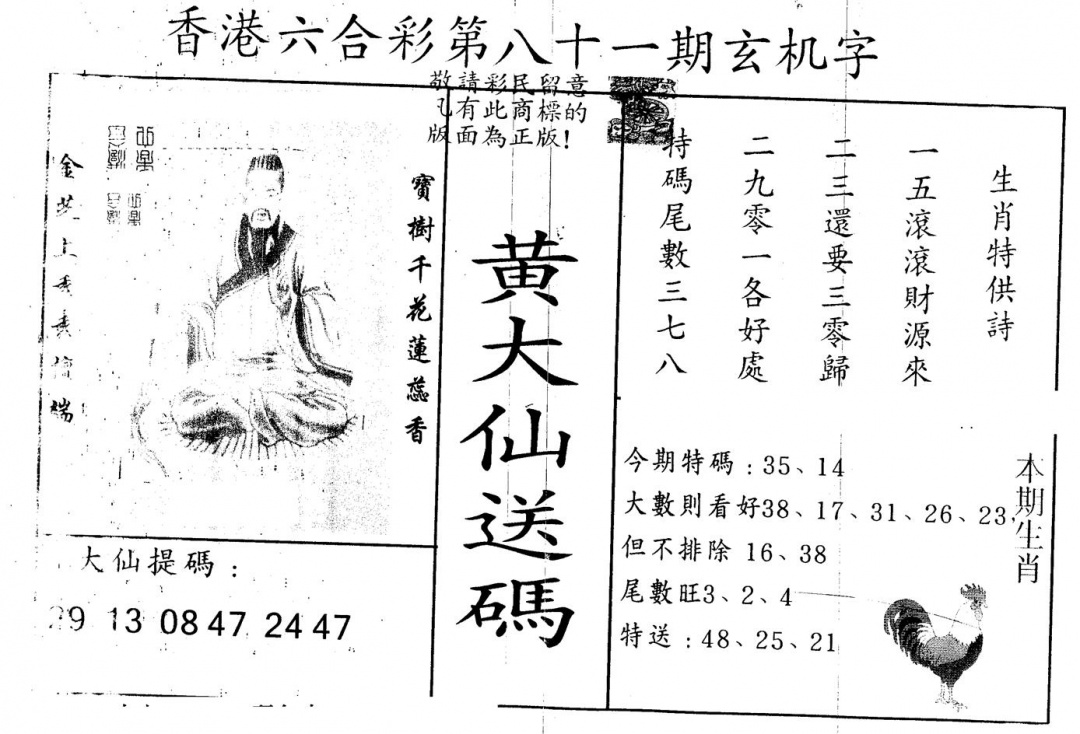 香港六合彩第八十一期玄机字
敬請彩民留意
有此商標的
版面為正版!
生肖特供詩
一五滾滾財源來
二三還要三零歸
二九零一各好處
特碼尾數三七八
黄大仙送碼
寶樹千花蓮蕊香
金芝上
端
大仙提碼：
29 13 08 47 24 47
今期特碼：35、14
大數則看好38、17、31、26、23、
但不排除 16、38
尾數旺3、2、4
特送：48、25、21
本期生肖